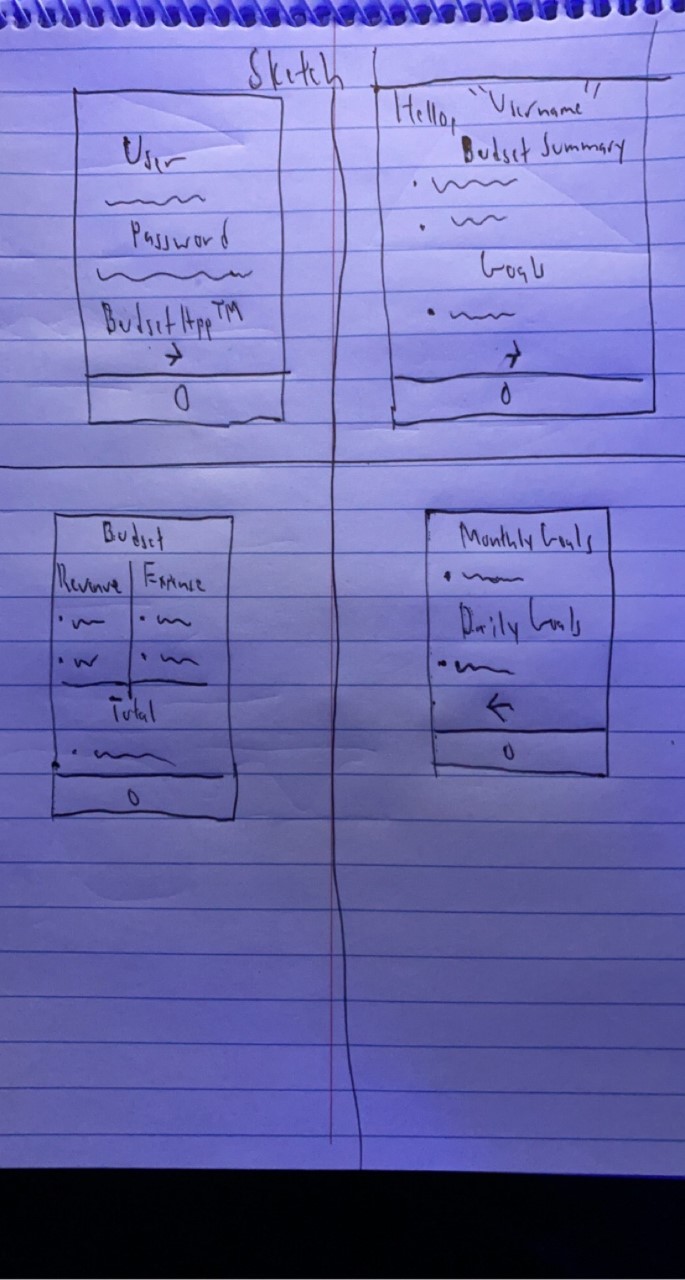 Sketch
User
Password
BudgetApp™
→
0
Hello, "Username"
Budget Summary
Goals
→
0
Budget
Revenue Expense
Total
0
Monthly Goals
Daily Goals
←
0